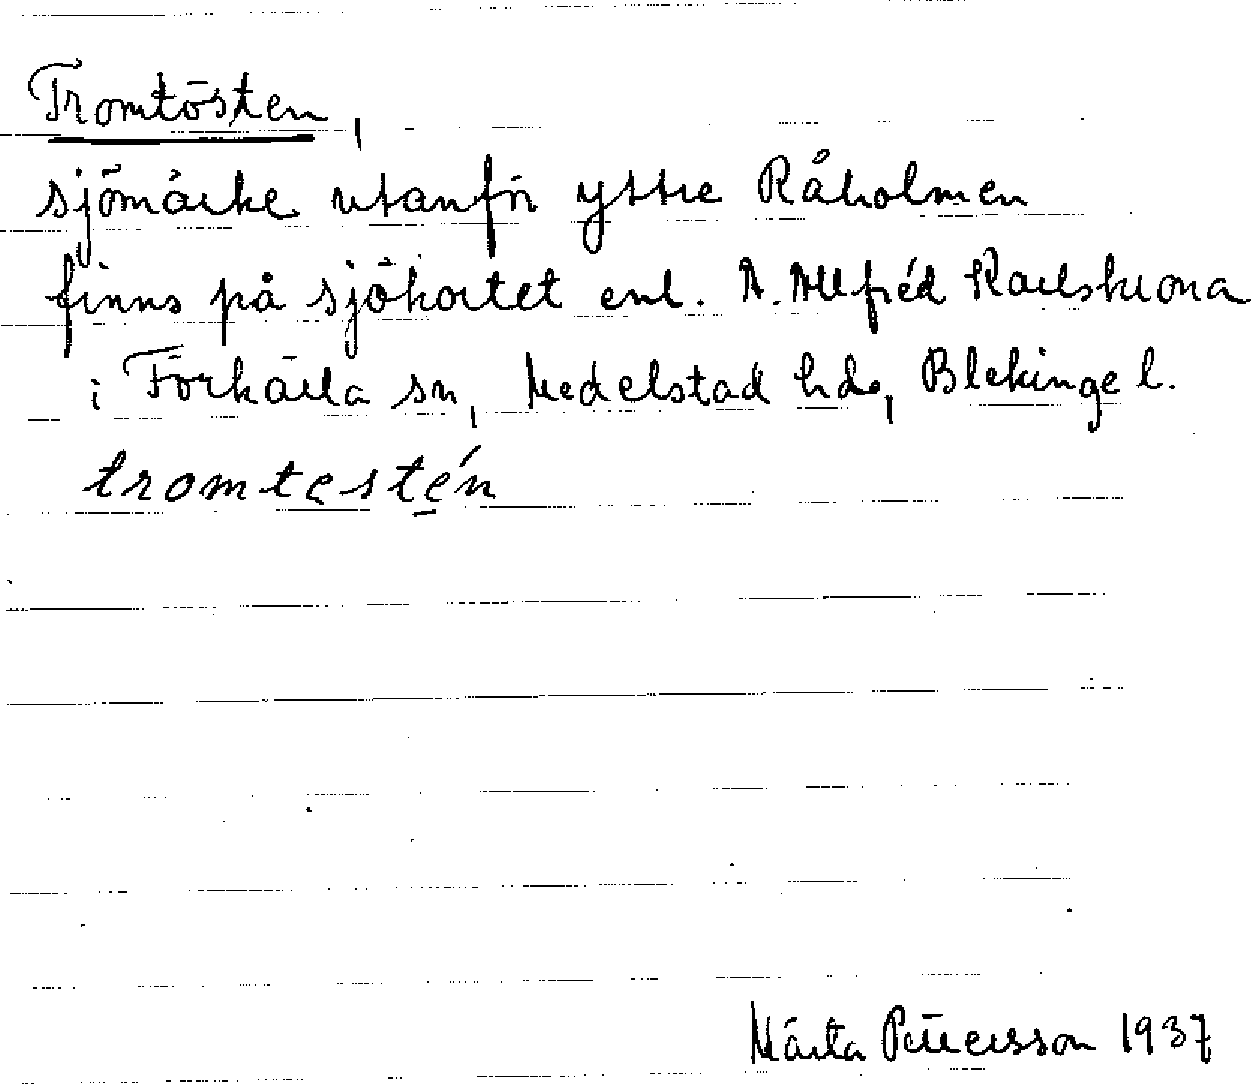 Tromtösten,
sjömärke utanför yttre Råholmen
finns på sjökortet enl. A. Allfréd Karlskrona
i Förkärla sn, Medelstad hde, Blekinge l.
tromtestén
Märta Pettersson 1937